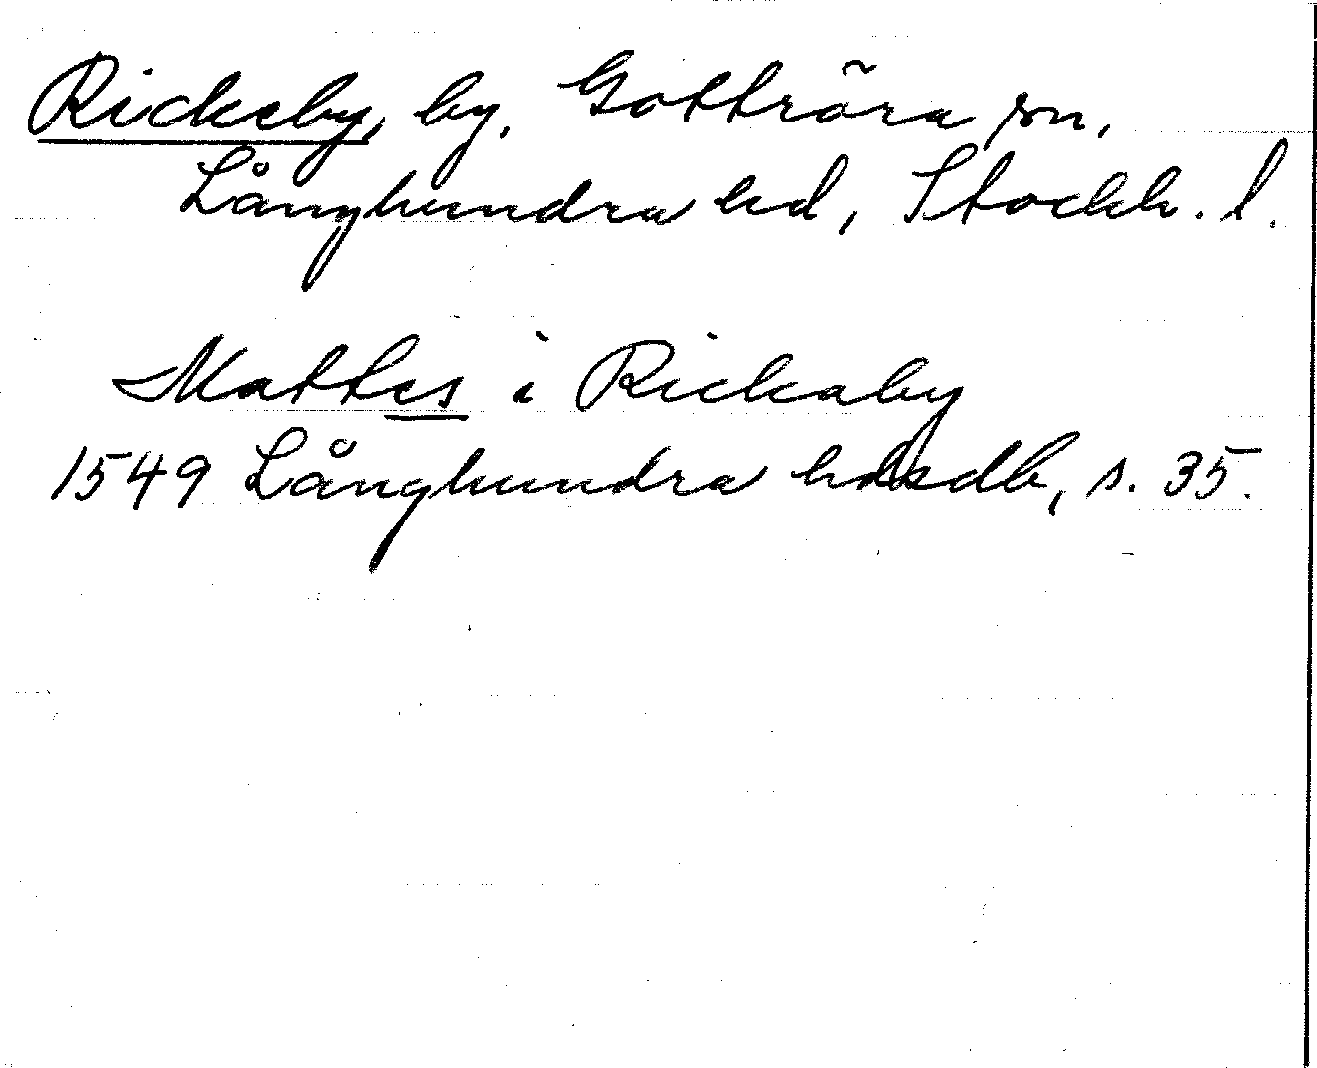 Rickeby, by, Gottröra sn,
Långhundra hd, Stockh. l.
Mattes i Rickaby
1549 Långhundra hdsdb, s. 35.